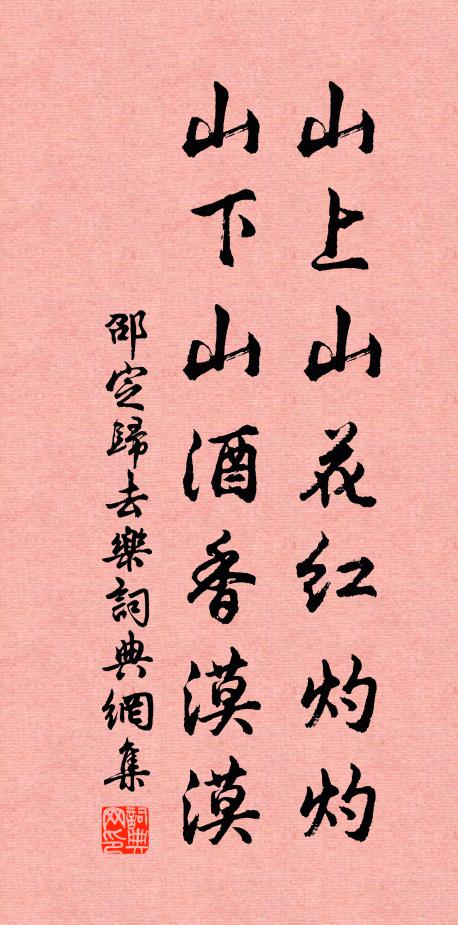 山上山花红灼灼
山下山酒香漠漠
邵定歸去樂詞典網集
詞典网印